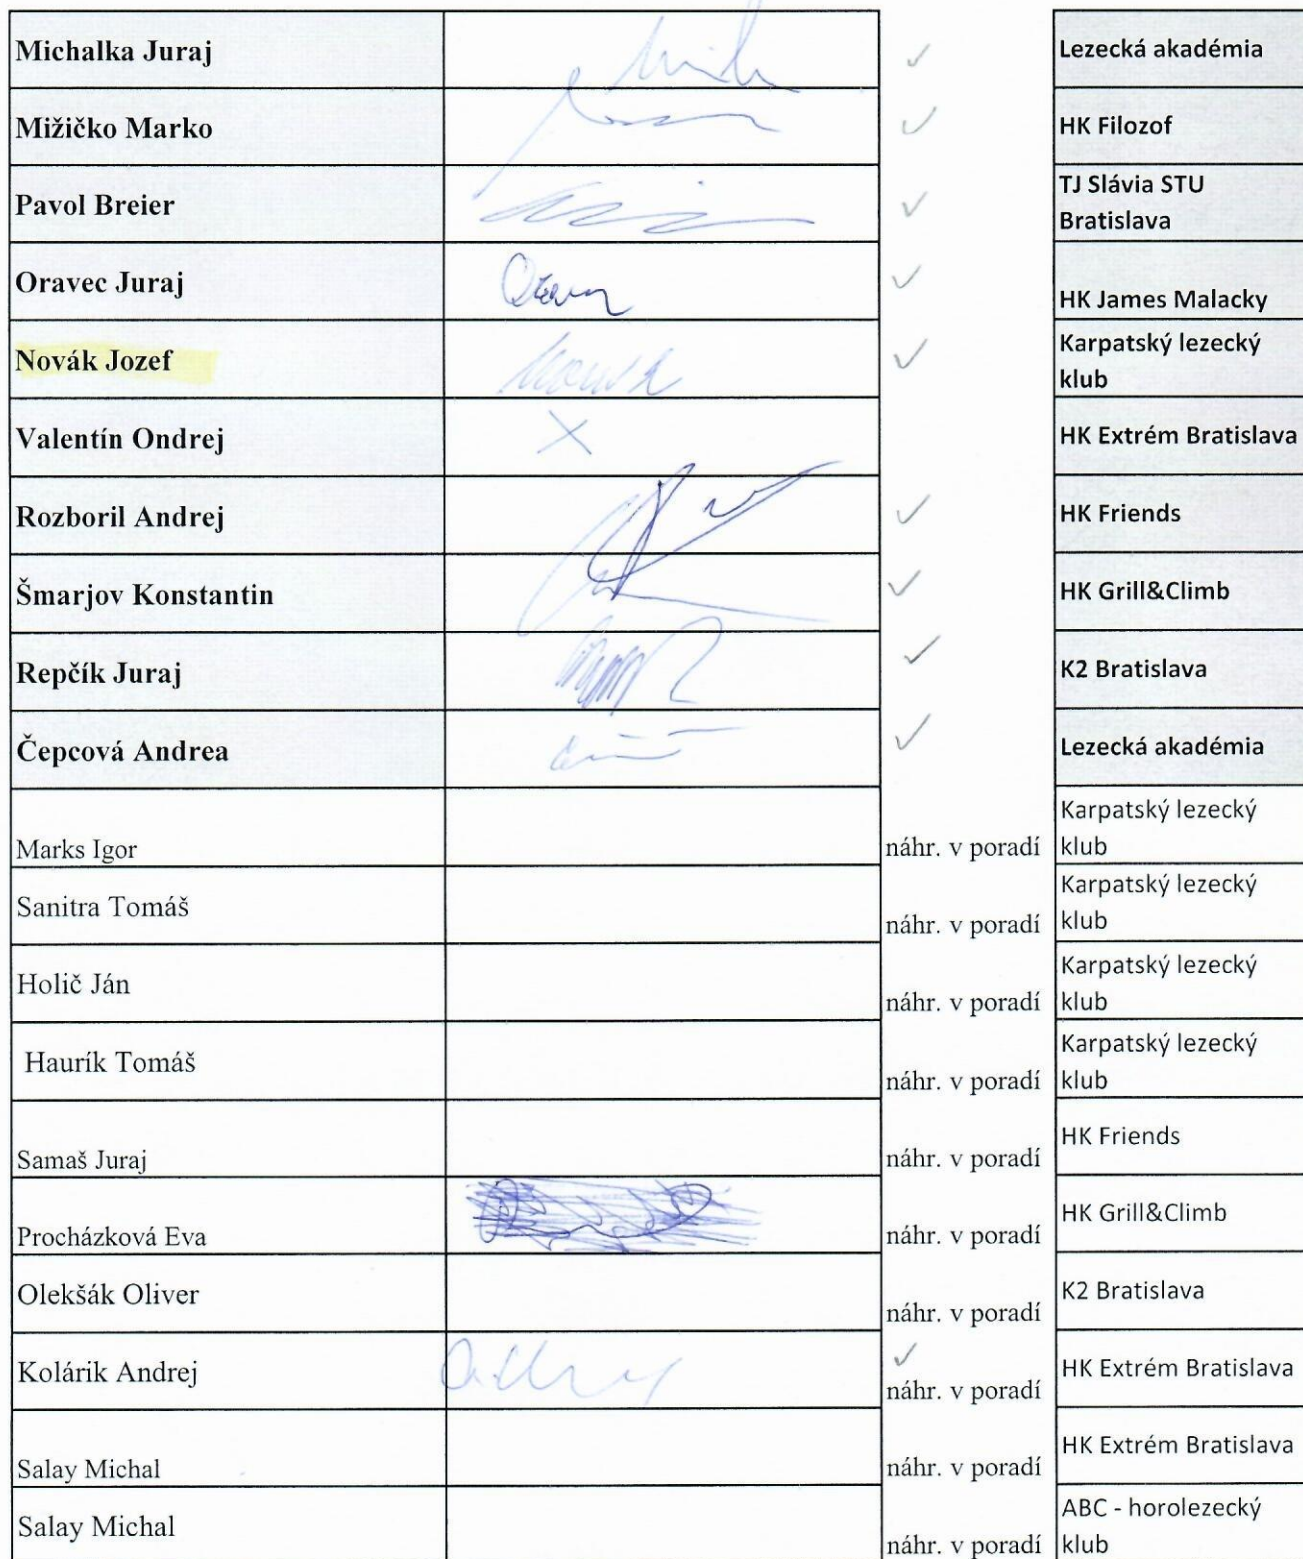 Michalka Juraj ✓ Lezecká akadémia
Mižičko Marko ✓ HK Filozof
Pavol Breier ✓ TJ Slávia STU
Bratislava
Oravec Juraj ✓ HK James Malacky
Novák Jozef ✓ Karpatský lezecký
klub
Valentín Ondrej X HK Extrém Bratislava
Rozboril Andrej ✓ HK Friends
Šmarjov Konstantin ✓ HK Grill&Climb
Repčík Juraj ✓ K2 Bratislava
Čepcová Andrea ✓ Lezecká akadémia
Karpatský lezecký
Marks Igor náhr. v poradí klub
Karpatský lezecký
Sanitra Tomáš náhr. v poradí klub
Karpatský lezecký
Holič Ján náhr. v poradí klub
Karpatský lezecký
Haurík Tomáš náhr. v poradí klub
Samaš Juraj náhr. v poradí HK Friends
Procházková Eva náhr. v poradí HK Grill&Climb
Olekšák Oliver náhr. v poradí K2 Bratislava
Kolárik Andrej ✓ náhr. v poradí HK Extrém Bratislava
Salay Michal náhr. v poradí HK Extrém Bratislava
ABC - horolezecký
Salay Michal náhr. v poradí klub